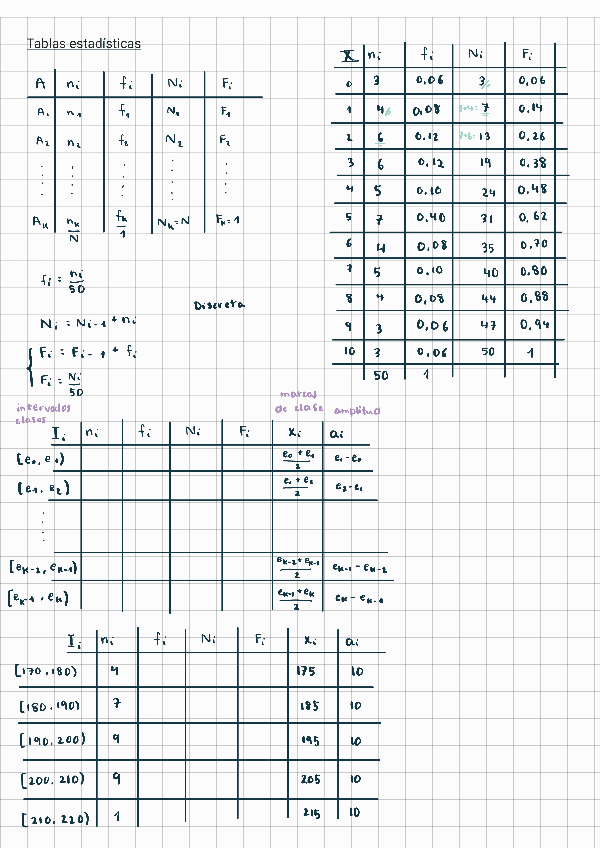 Tablas estadísticas
A ni fi Ni Fi
A1 n1 f1 N1 F1
A2 n2 f2 N2 F2
Ak nk fk Nk = N Fk = 1
N 1
fi = ni/50
Discreta
Ni = Ni-1 + ni
Fi = Fi-1 + fi
Fi = Ni/50
X ni fi Ni Fi
0 3 0,06 3 0,06
1 4 0,08 3+4= 7 0,14
2 6 0,12 7+6= 13 0,26
3 6 0,12 19 0,38
4 5 0,10 24 0,48
5 7 0,40 31 0,62
6 4 0,08 35 0,70
7 5 0,10 40 0,80
8 4 0,08 44 0,88
9 3 0,06 47 0,94
10 3 0,06 50 1
50 1
intervalos
clases
marcas
de clase amplitud
Ii ni fi Ni Fi xi ai
[e0, e1) e0 + e1/2 e1 - e0
[e1, e2) e1 + e2/2 e2 - e1
[ek-2, ek-1) ek-2 + ek-1/2 ek-1 - ek-2
[ek-1, ek) ek-1 + ek/2 ek - ek-1
Ii ni fi Ni Fi xi ai
[170,180) 4 175 10
[180,190) 7 185 10
[190,200) 9 195 10
[200,210) 9 205 10
[210,220) 1 215 10